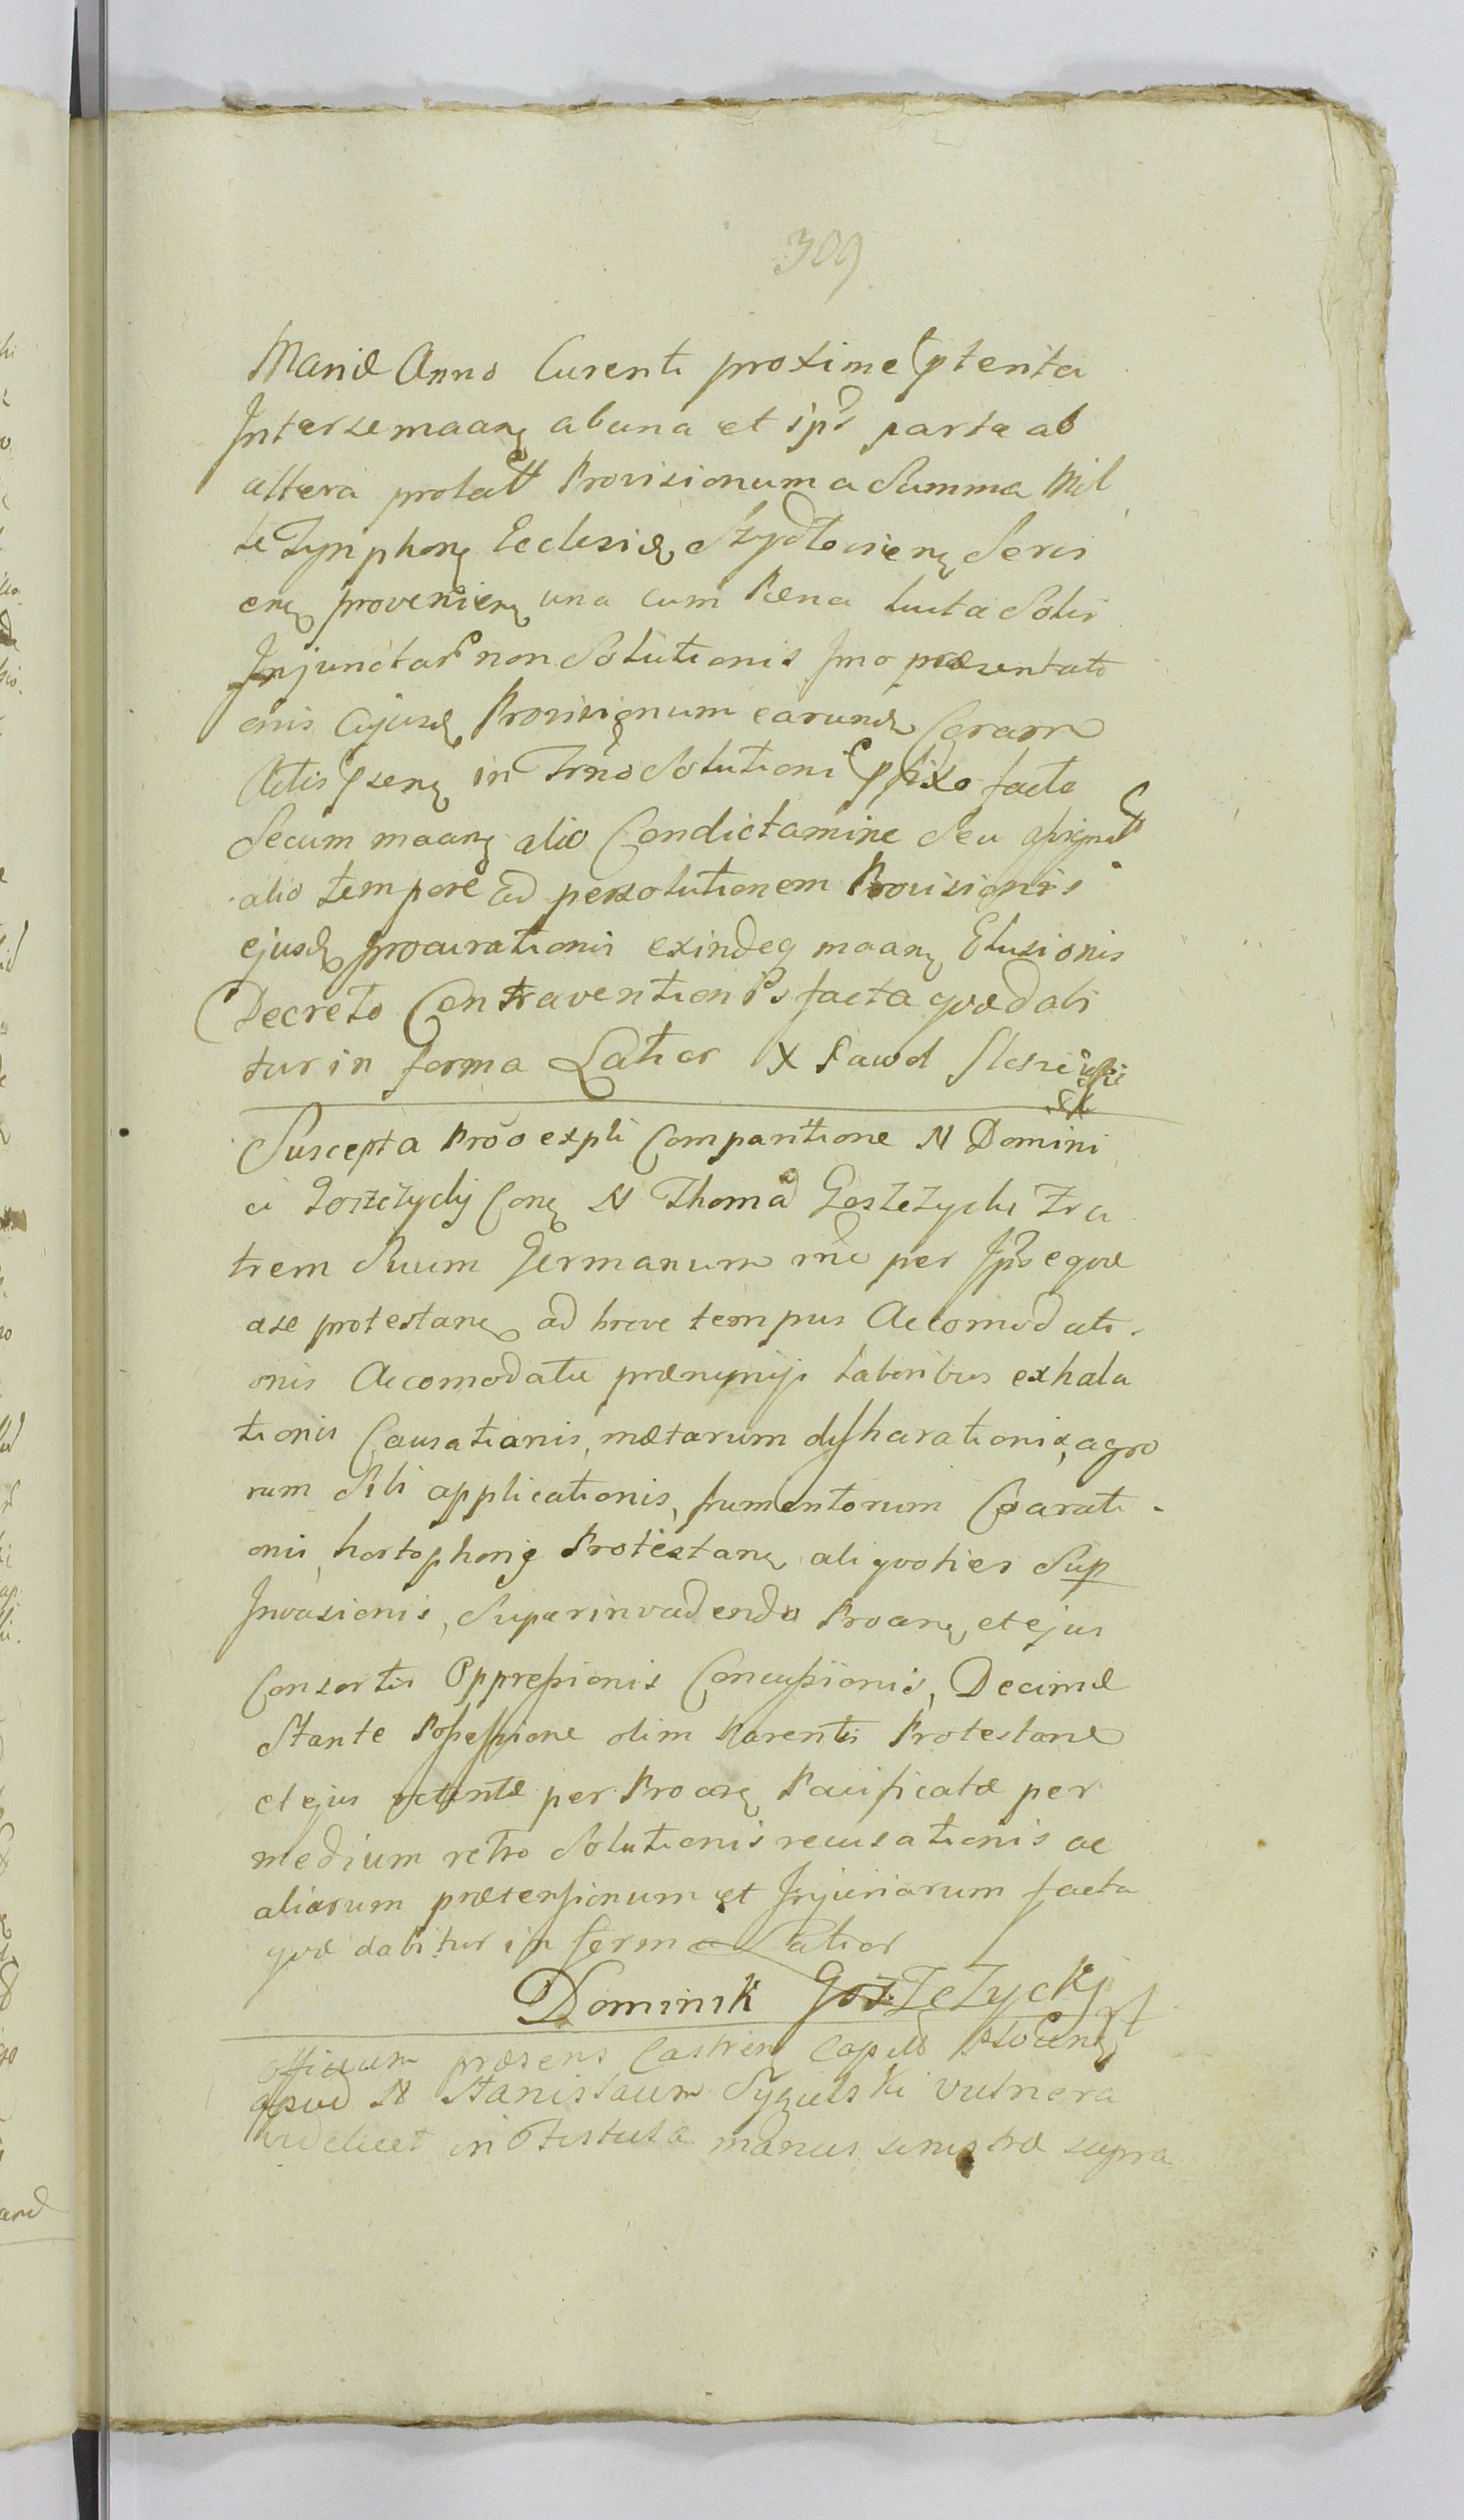 309
Mariæ Anno Curenti proxime pterita
Intersemaanę ab una et ips parte ab
altera prolatt Provisionum a Summa Mil
le Tynphonę Ecclesiæ Szydłovienę Servi
enę provenienę una cum Pæna luita Solis
Injunctar non Solutionis Imo præsentati
onis Cujusdę Provisionum earundę Coram
Actis psenę in Trno Solutioni pfixo facte
Secum maanę alio Condictamine Seu
alio tempore ad persolutionem Provisionis
ejusdę procurationis exindeq maanę Elusionis
Decreto Contraventionis facta quæ dabi
tur in forma Latior X Pawel
Suscepta Proo expti Comparitione N Domini
ci Goszczycki Conę N Thomā Goszczycki Fra
trem Suum Germanum rne per Ips eque
ase protestanę ad breve tempus Accomodati
onis Accomodatæ præmijs laboribus exhala
tionis Causationis, mætarum disharationis, agro
rum Sibi applicationis, frumentorum Coarati
onis, hortophonię Protestanę aliquoties Sup
Invasionis, Superinvadendo Proanę, et ejus
Consortis Oppressionis Concussionis, Decimæ
Stante Possessione olim Parentis Protestanę
et ejus per Proanę Pacificatæ per
medium retro Solutionis recusationis ac
aliarum prætensionum et Injuriarum facta
quæ dabitur in forma Latior
Dominik Goszczycki
officium præsens Castrenę Capitle Plocenę
apud N Stanislaum Sygulski vulnera
videlicet in Fistula manus sinistræ supra